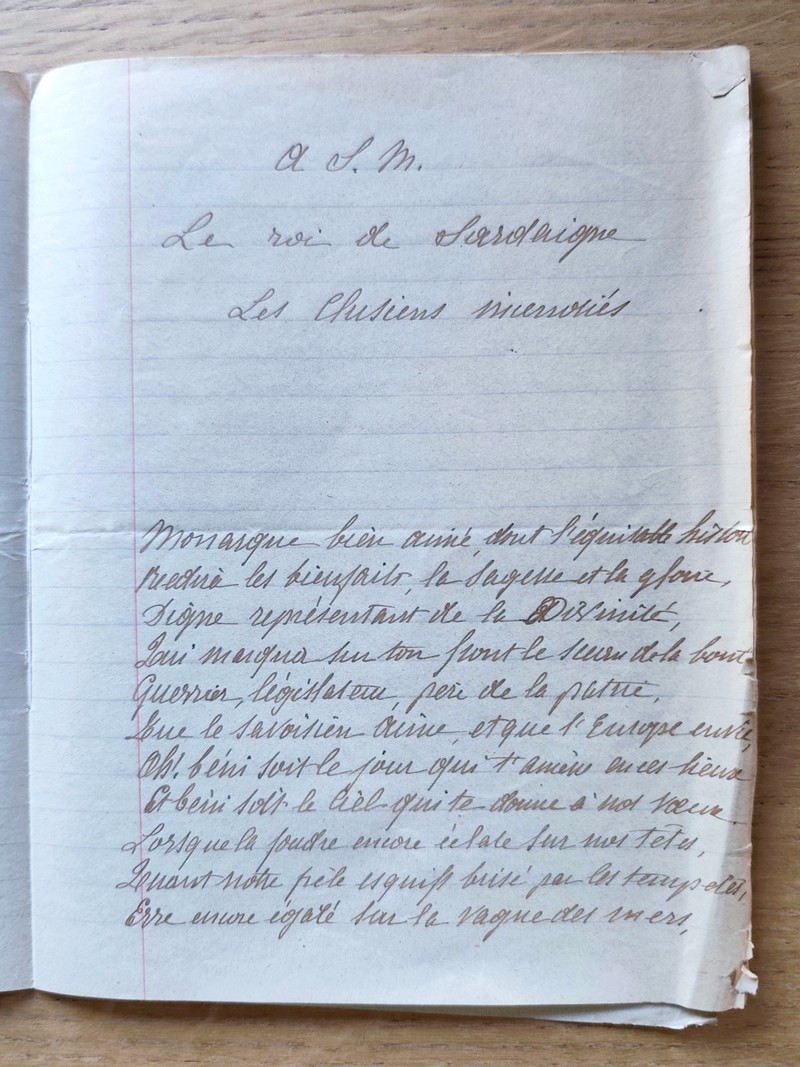 A S. M.
Le roi de Sardaigne
Les Clusiens incendiés
Monarque bien aimé, dont l'équitable histoir
Redira les bienfaits, la sagesse et la gloire,
Digne représentant de la Divinité,
Qui marqua sur ton front le sceau de la bont
Guerrier, législateur, père de la patrie,
Que le savoisien aime, et que l'Europe envie,
Oh! béni soit le jour qui t'amène en ces lieux
Et béni soit le Ciel qui te donne à nos vœux.
Lorsque la foudre encore éclate sur nos têtes,
Quant notre frêle esquif brisé par les tempetes,
Erre encore égaté sur la vague des mers,